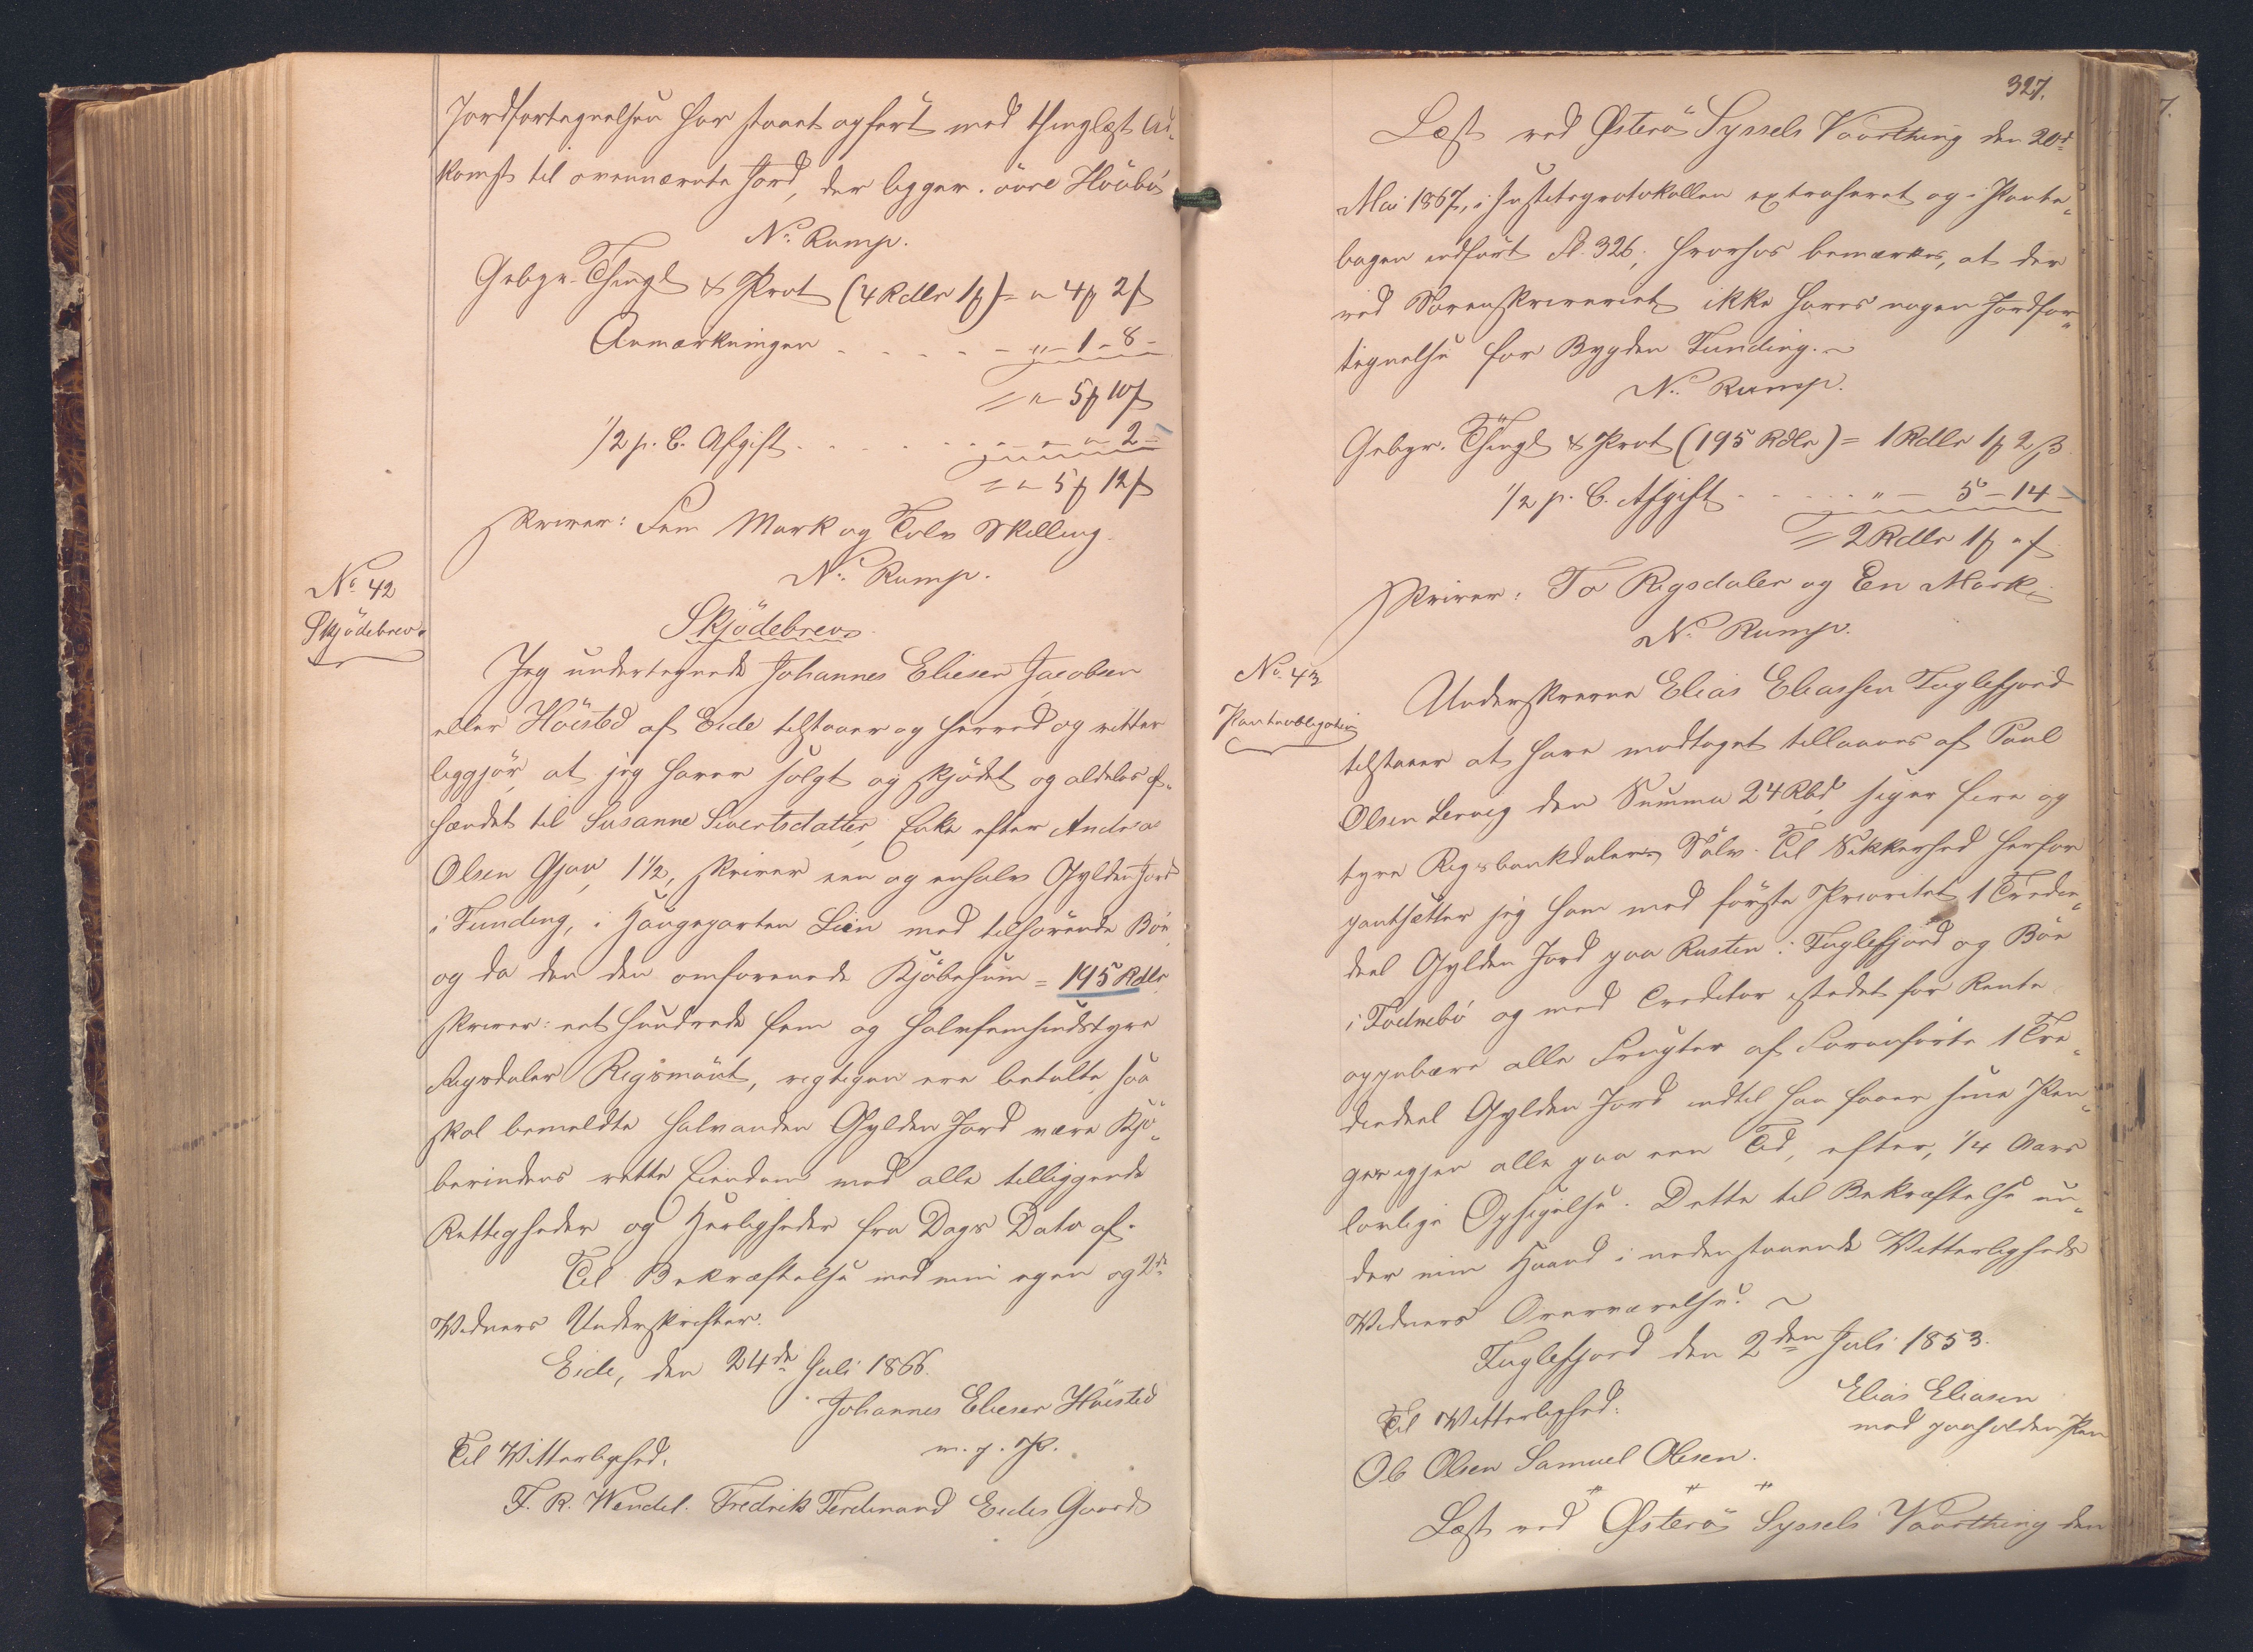 Jordfortegnelsen har staaet opført med thinglæst Ad-
komst til ovennævnte Jord, der ligger i övre Höübö
N. Rump.
Gebyr. Thingl & Prot (4 Rdlr 1 ꝳ) = " 4 ꝳ 2 ß
Anmærkningen - - - - - - " - 1 - 8 -
= " - 5 ꝳ 10 ß
1/2 p. C. Afgift - - - - - - " - " - 2 -
= " - 5 ꝳ 12 ß
skriver: Fem Mark og Tolv Skilling.
N. Rump.
No 42
Skjödebrev.
Skjödebrev.
Jeg undertegnede Johannes Eliesen Jacobsen
eller Höisted af Eide tilstaaer og herved og vitter-
liggjör, at jeg haver solgt og skjödet og aldeles af-
hændet til Susanne Sivertsdatter, Enke efter Andreas
Olsen Gjov, 1 1/2, skriver een og enhalv Gylden Jord
i Funding, i Haugeparten Lien med tilhörende Böe,
og da den den omforenede Kjöbesum = 195 Rdlr
skriver: eet hundrede fem og halvfemsindstyve
Rigsdaler Rigsmönt, rigtigen ere betalte, saa
skal bemeldte halvanden Gylden Jord være Kjö-
berindens rette Eiendom med alle tilliggende
Rettigheder og Herligheder fra Dags Dato af.
Til Bekræftelse med min egen og 2de
Vidners Underskrifter.
Eide, den 24de Juli 1866.
Johannes Eliesen Höisted
m. p. P.
Til Vitterlighed:
F. R. Wendel. Fredrik Ferdinand Eides Gaard
327.
Læst ved Österö Syssels Vaarthing den 20d
Mai 1867, i Justitsprotokollen extraheret og i Pante-
bogen indfört No. 326; hvorhos bemærkes, at der
ved Sorenskriveriet ikke haves nogen Jordfor-
tegnelse for Bygden Funding. ~
N. Rump.
Gebyr. Thingl & Prot (195 Rdlr) = 1 Rdlr 1 ꝳ 2 ß
1/2 p. C. Afgift - - - - - " - 5 - 14 -
= 2 Rdlr 1 ꝳ " ß
skriver: To Rigsdaler og Een Mark.
N. Rump.
No. 43
Panteobligation
Underskrevne Elias Eliassen Fuglefjord
tilstaaer at have modtaget tillaans af Paul
Olsen Lervig den Summa 24 Rbd, siger fire og
tyve Rigsbankdaler Sölv. Til Sikkerhed herfor
pantsætter jeg ham med förste Prioritet 1 Tredie-
deel Gylden Jord paa Rusten i Fuglefjord og Böe
i Todnebö og med Creditor istedet for Rente
oppebære alle Frugter af Foranförte 1 Tre-
diedeel Gylden Jord indtil han faaer sine Pen-
ge igjen alle paa een Tid, efter, 1/4 Aars
lovlige Opsigelse. Dette til Bekræftelse un-
der min Haand i nedenstaaende Vitterligheds
Vidners Overværelse. ~
Fuglefjord den 2den Juli 1853.
Elias Eliasen
med paaholden Pen
Til Vitterlighed:
Ole Olsen Samuel Olesen.
Læst ved Österö Syssels Vaarthing den